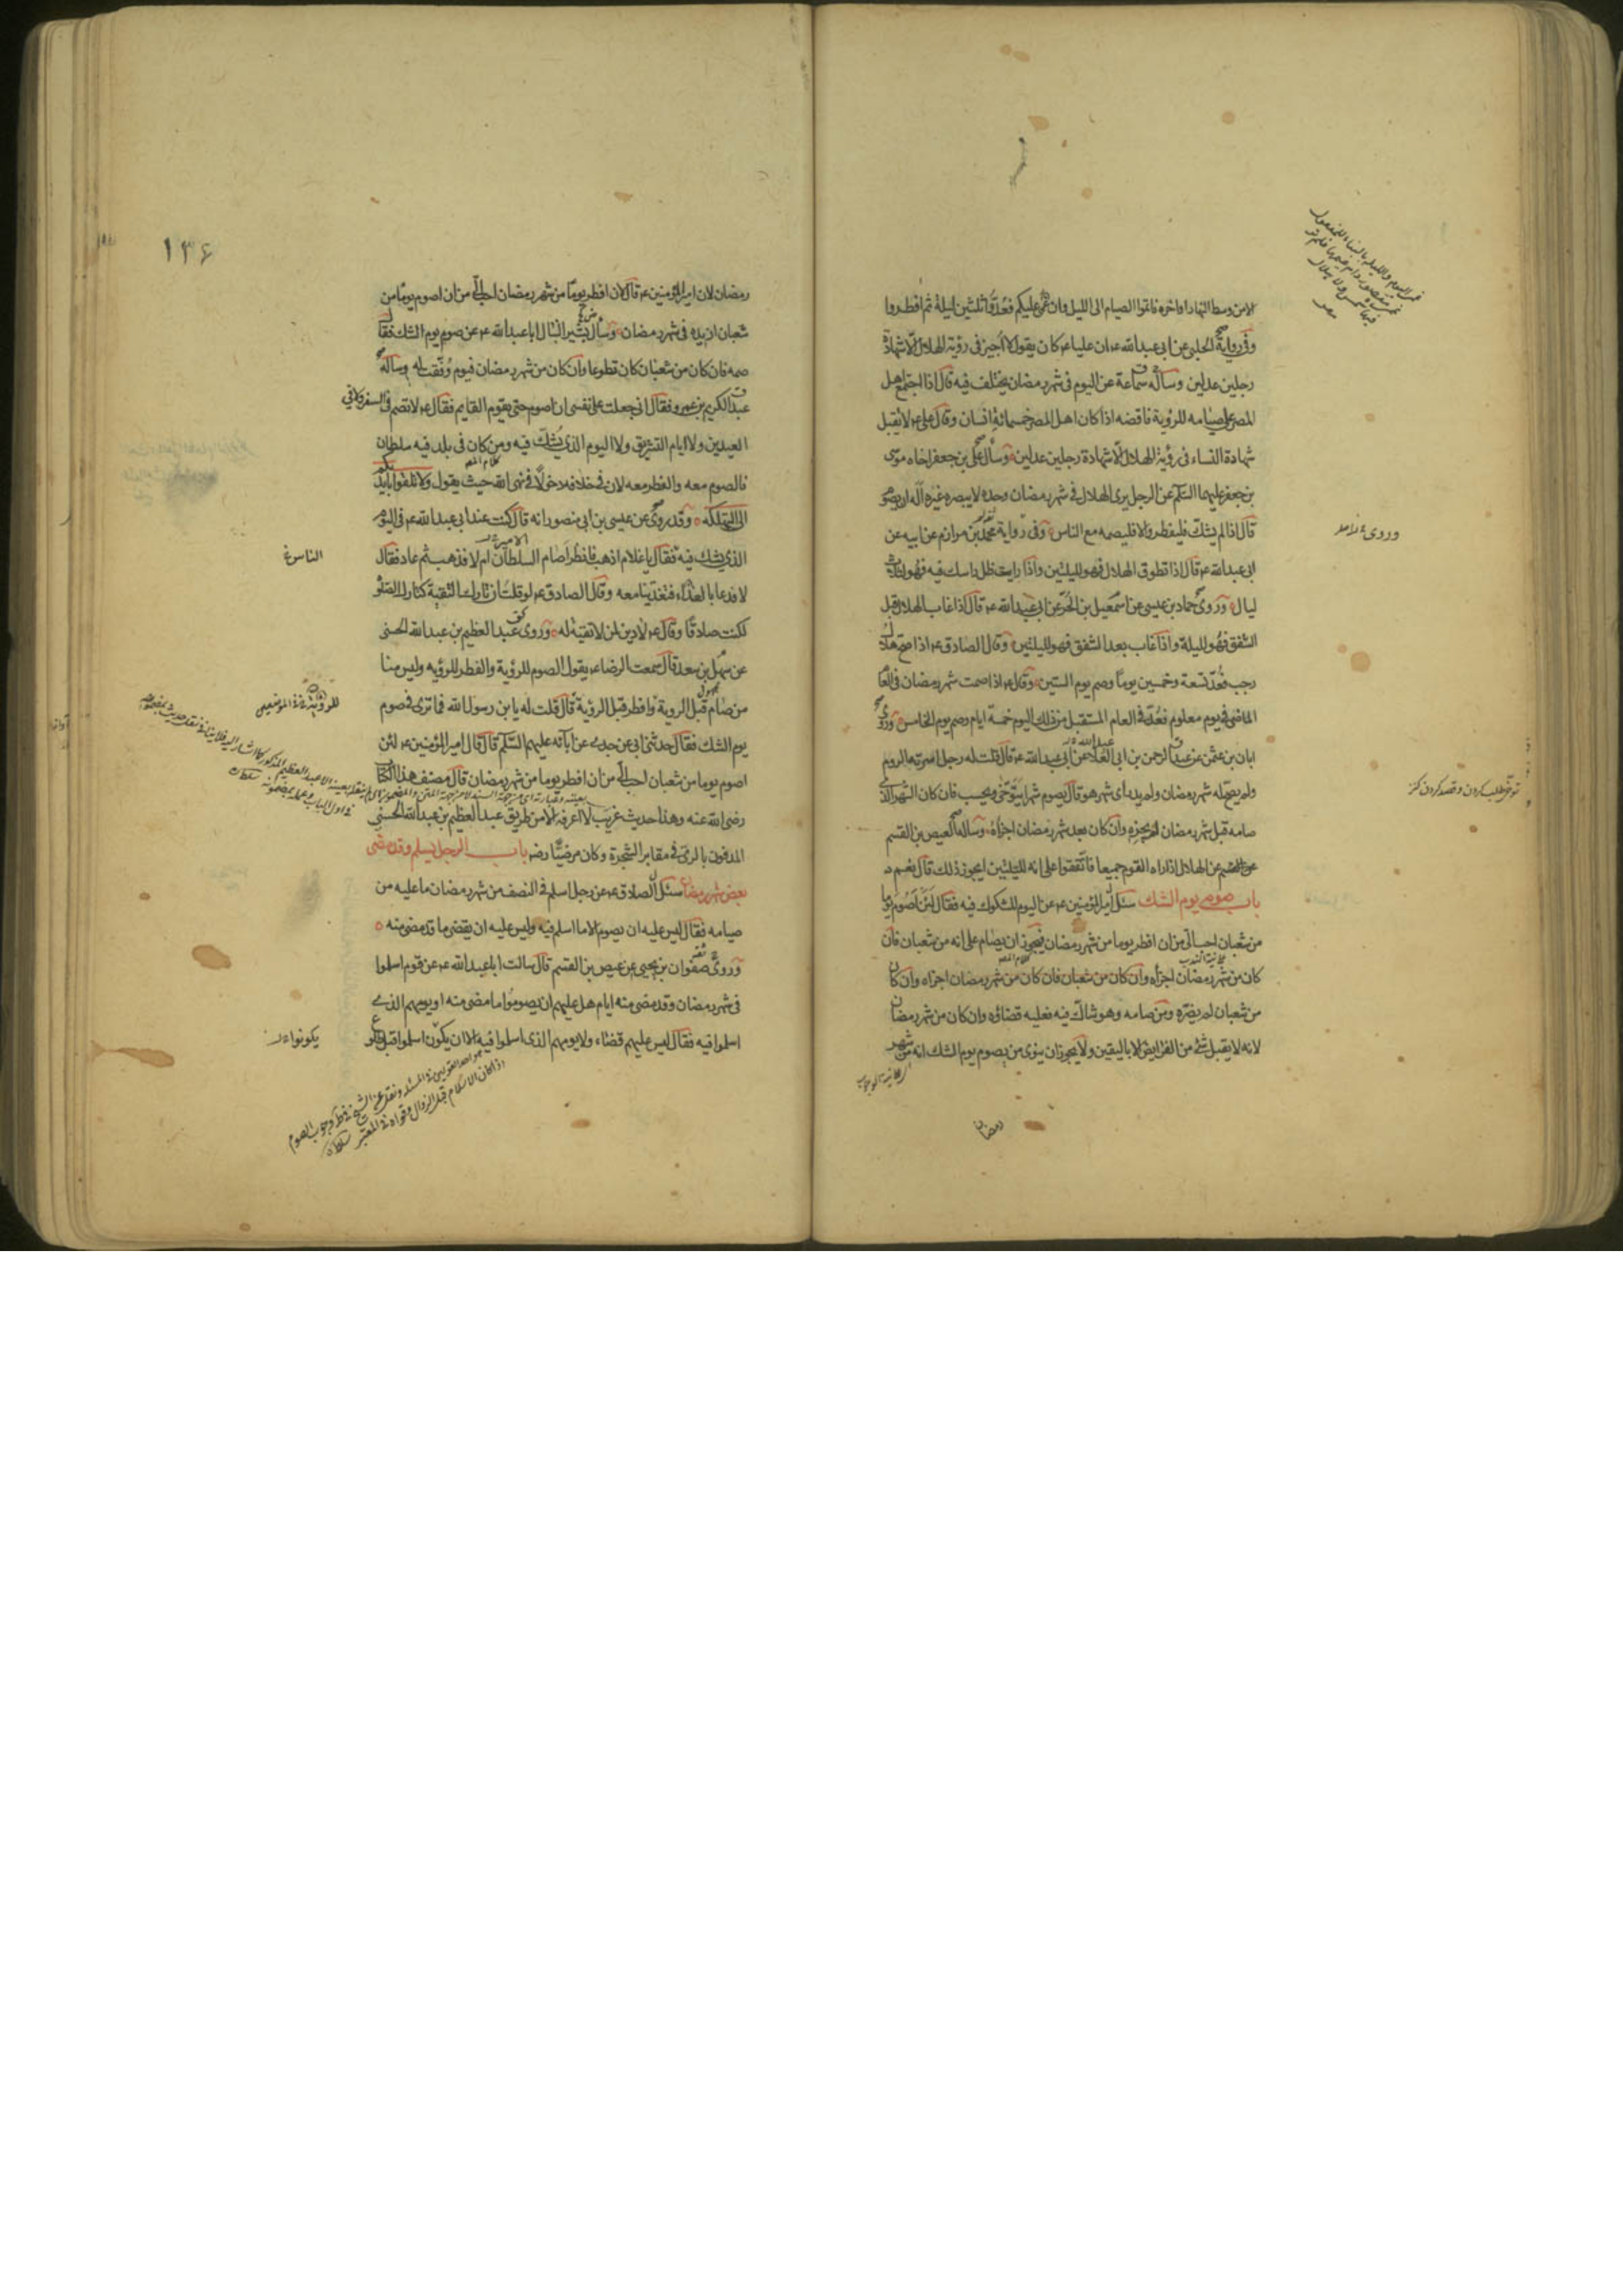 الا من وسط النهار او اخره فاتموا الصيام الى الليل وان غم عليكم فعدوا ثلثين ليلة ثم افطروا
وفى رواية الحلبى عن ابى عبدالله ع ان عليا ع كان يقول لا اجيز فى رؤية الهلال الا شهادة
رجلين عدلين وسأله سماعة عن اليوم فى شهر رمضان يختلف فيه قال اذا اجتمع اهل
المصر على صيامه للرؤية فاقضه اذا كان اهل المصر خمسمائة انسان وقال على ع لا تقبل
شهادة النساء فى رؤية الهلال الا شهادة رجلين عدلين وسأل على بن جعفر اخاه موسى
بن جعفر عليهما السلم عن الرجل يرى الهلال فى شهر رمضان وحده لا يبصره غيره أله ان يصوم
قال اذا لم يشك فليفطر والا فليصمه مع الناس وفى رواية محمد بن مرازم عن ابيه عن
ابى عبدالله ع قال اذا تطوق الهلال فهو لليلتين واذا رايت ظل راسك فيه فهو لثلث
ليال وروى حماد بن عيسى عن اسمعيل بن الحر عن ابى عبدالله ع قال اذا غاب الهلال قبل
الشفق فهو لليلة واذا غاب بعد الشفق فهو لليلتين وقال الصادق ع اذا صح هلال
رجب فعد تسعة وخمسين يوما وصم يوم الستين وقال ع اذا صمت شهر رمضان فى العام
الماضى فى يوم معلوم فعد فى العام المستقبل من ذلك اليوم خمسة ايام وصم يوم الخامس وروى
ابان بن عثمن عن عبد الرحمن بن ابى العلاء عن ابى عبدالله ع قال قلت له رجل اسرته الروم
ولم يصح له شهر رمضان ولم يدر اى شهر هو قال يصوم شهرا يتوخى ويحسب فان كان الشهر الذى
صامه قبل شهر رمضان لم يجزه وان كان بعد شهر رمضان اجزأه وسأله العيص بن القسم
عن الهلال اذا راه القوم جميعا فاتفقوا على انه لليلتين ايجوز ذلك قال نعم
باب صوم يوم الشك سئل امير المؤمنين ع عن اليوم المشكوك فيه فقال لئن اصوم يوما
من شعبان احب الى من ان افطر يوما من شهر رمضان فيجوز ان يصام على انه من شعبان فان
كان من شهر رمضان اجزأه وان كان من شعبان فان كان من شهر رمضان اجزاه وان كان
من شعبان لم يضره ومن صامه وهو شاك فيه فعليه قضاؤه وان كان من شهر رمضان
لانه لا يقبل شئ من الفرايض الا باليقين ولا يجوز ان ينوى من يصوم يوم الشك انه من شهر
رمضان
توخى طلب كردن وقصد كردن كنز
١٣۶
رمضان لان امير المؤمنين ع قال لان افطر يوما من شهر رمضان احب الى من ان اصوم يوما من
شعبان ازيده فى شهر رمضان وسأل بشير النبال ابا عبدالله ع عن صوم يوم الشك فقال
صمه فان كان من شعبان كان تطوعا وان كان من شهر رمضان فيوم وفقت له وسأله
عبد الكريم بن عمرو فقال انى جعلت على نفسى ان اصوم حتى يقوم القايم فقال ع لا تصم فى السفر ولا فى
العيدين ولا ايام التشريق ولا اليوم الذى يشك فيه ومن كان فى بلد فيه سلطان
فالصوم معه والفطر معه لان فى خلافه دخولا فى نهى الله حيث يقول ولا تلقوا بايديكم
الى التهلكه وقد روى عن عيسى بن ابى منصور انه قال كنت عند ابى عبدالله ع فى اليوم
الذى يشك فيه فقال يا غلام اذهب فانظر أصام السلطان ام لا فذهب ثم عاد فقال
لا فدعا بالغداء فتغدينا معه وقال الصادق ع لو قلت ان تارك التقية كتارك الصلوة
لكنت صادقا وقال ع لا دين لمن لا تقية له وروى عبد العظيم بن عبدالله الحسنى
عن سهل بن سعد قال سمعت الرضا ع يقول الصوم للرؤية والفطر للرؤيه وليس منا
من صام قبل الروية وافطر قبل الرؤية قال قلت له يا بن رسول الله فما ترى فى صوم
يوم الشك فقال حدثنى ابى عن جدى عن آبائه عليهم السلم قال قال امير المؤمنين ع لئن
اصوم يوما من شعبان احب الى من ان افطر يوما من شهر رمضان قال مصنف هذا الكتاب
رضى الله عنه وهذا حديث غريب لا اعرفه الا من طريق عبد العظيم بن عبدالله الحسنى
المدفون بالرى فى مقابر الشجرة وكان مرضيا رضه باب الرجل يسلم وقد مضى
بعض شهر رمضان سئل الصادق ع عن رجل اسلم فى النصف من شهر رمضان ما عليه من
صيامه فقال ليس عليه ان يصوم الا ما اسلم فيه وليس عليه ان يقضى ما قد مضى منه
وروى صفوان بن يحيى عن عيص بن القسم قال سالت ابا عبدالله ع عن قوم اسلموا
فى شهر رمضان وقد مضى منه ايام هل عليهم ان يصوموا ما مضى منه او يومهم الذى
اسلموا فيه فقال ليس عليهم قضاء ولا يومهم الذى اسلموا فيه الا ان يكون اسلموا قبل طلوع
الناس خ
يكونوا